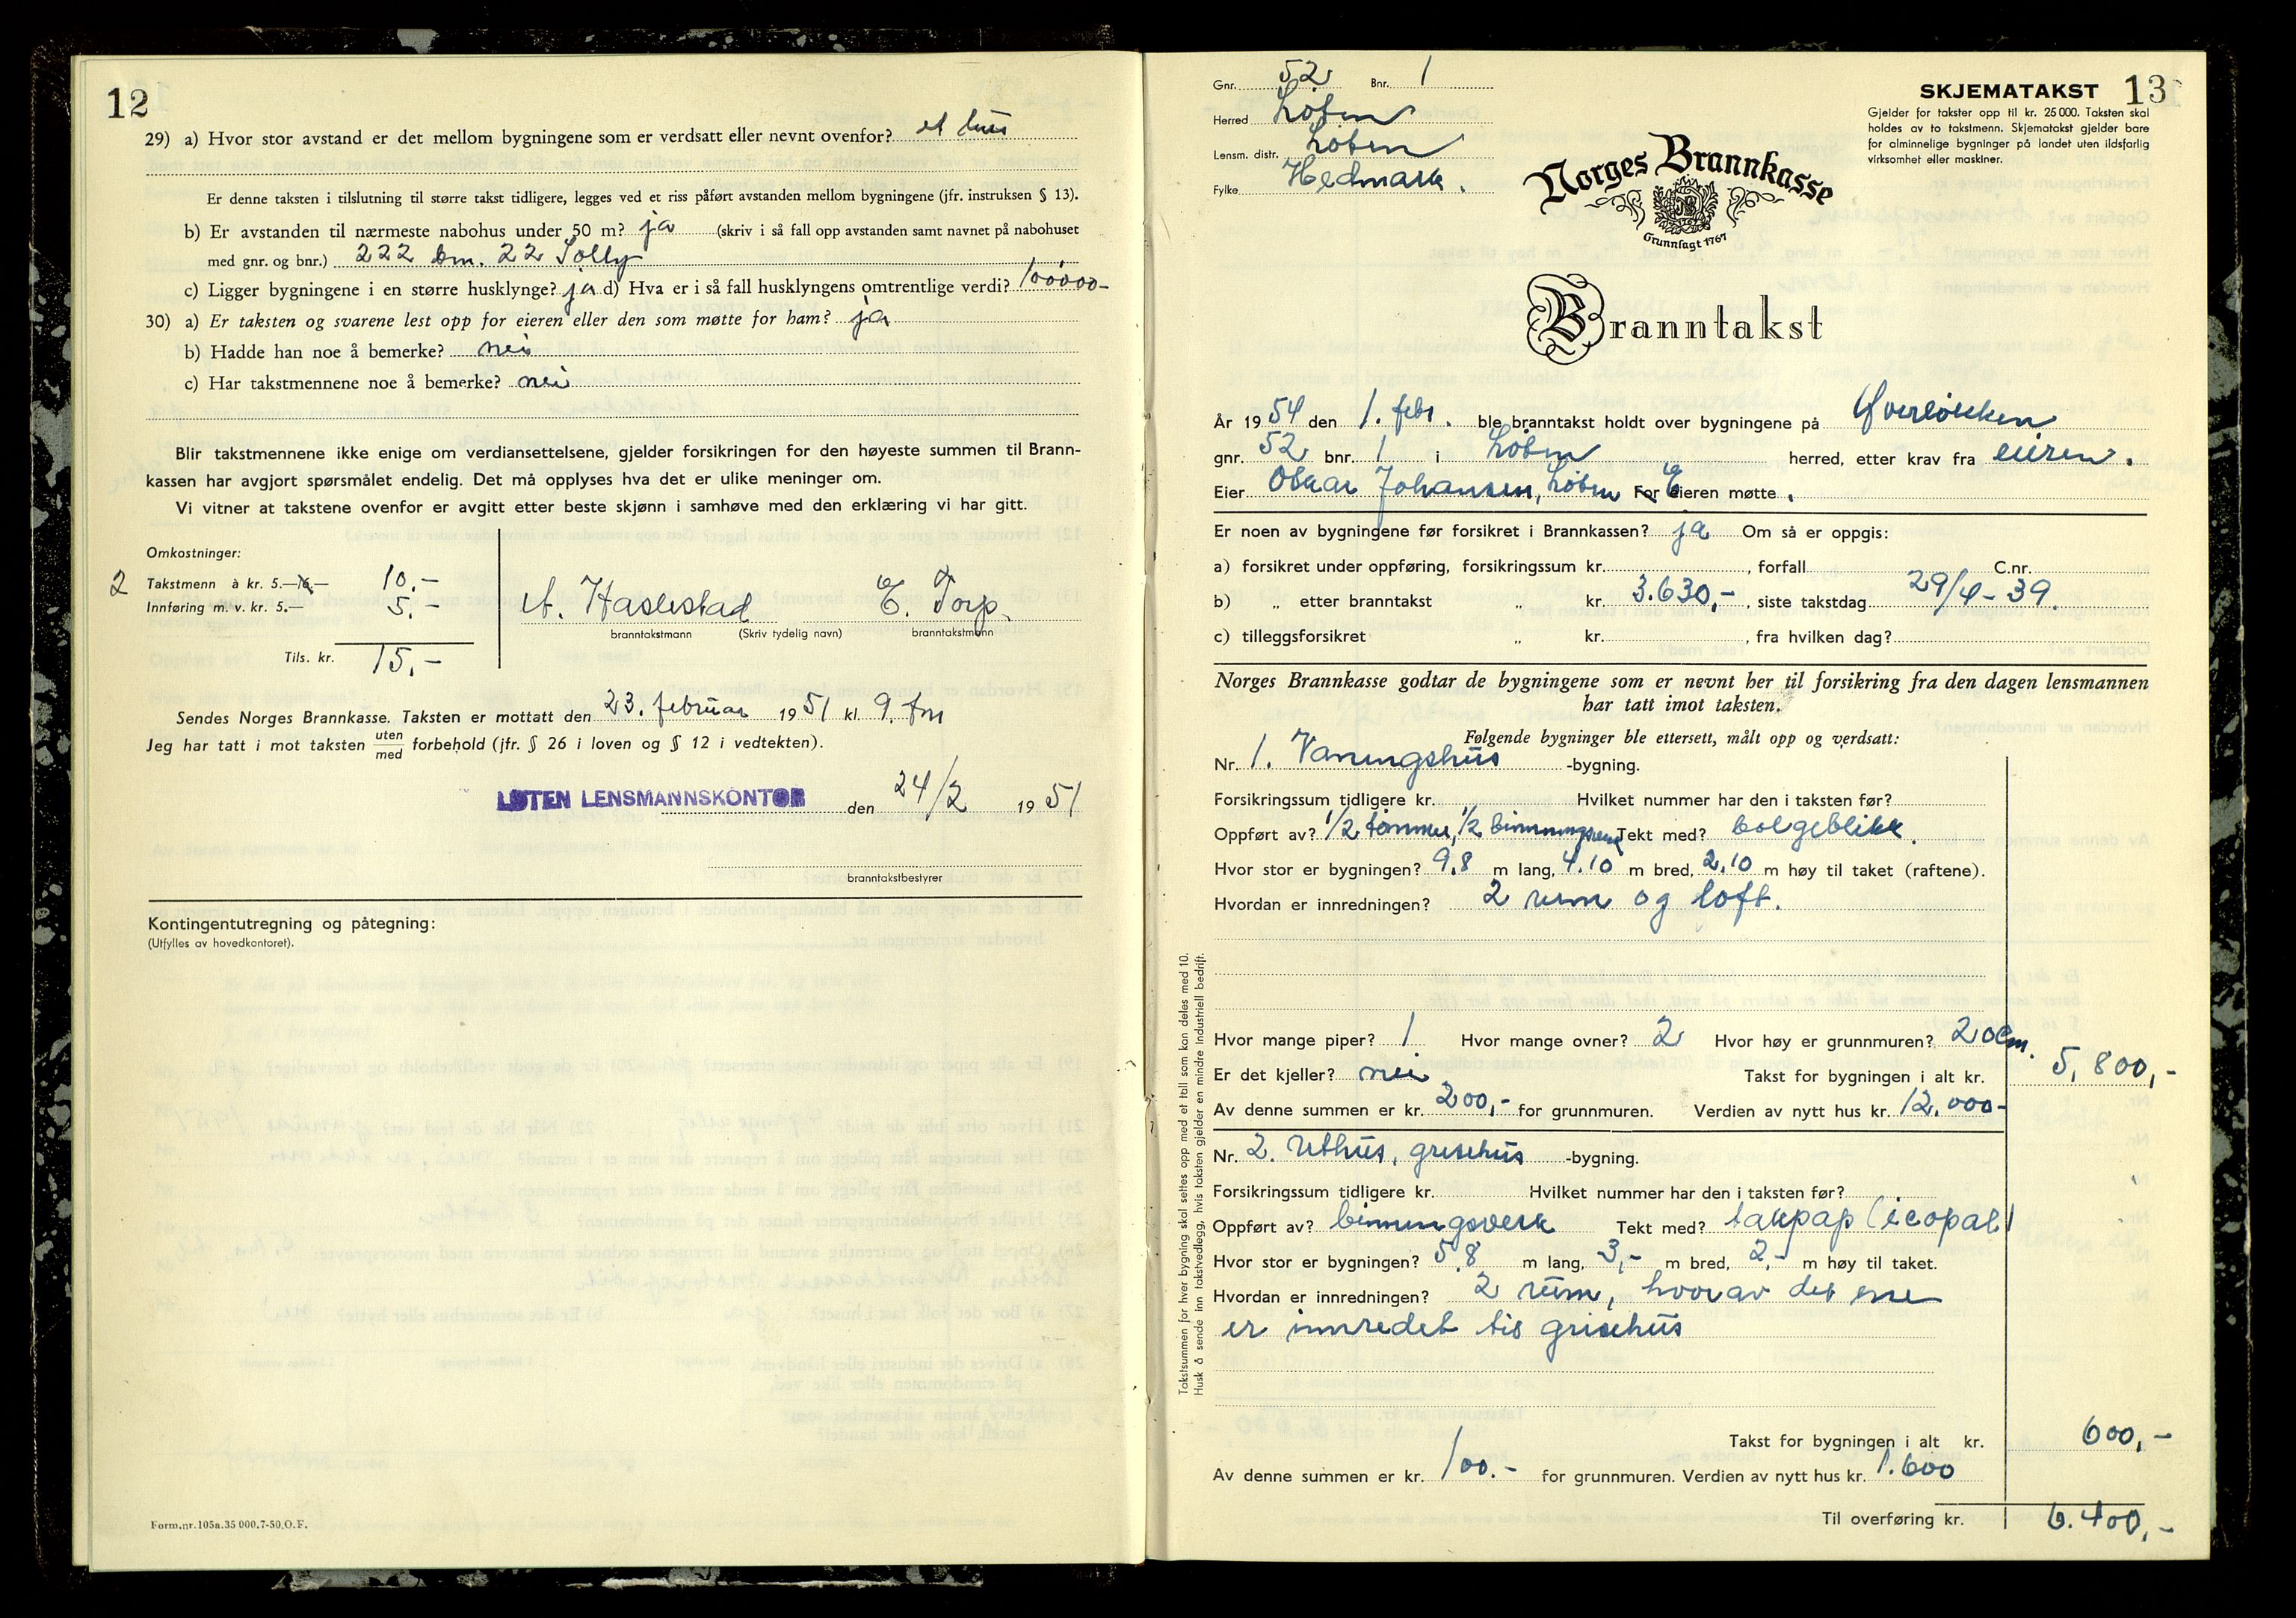 12
29) a) Hvor stor avstand er det mellom bygningene som er verdsatt eller nevnt ovenfor? et hus
Er denne taksten i tilslutning til større takst tidligere, legges ved et riss påført avstanden mellom bygningene (jfr. instruksen § 13).
b) Er avstanden til nærmeste nabohus under 50 m? ja (skriv i så fall opp avstanden samt navnet på nabohuset
med gnr. og bnr.) 222 bnr. 22 Solly
c) Ligger bygningene i en større husklynge? ja d) Hva er i så fall husklyngens omtrentlige verdi? 100000-
30) a) Er taksten og svarene lest opp for eieren eller den som møtte for ham? ja
b) Hadde han noe å bemerke? nei
c) Har takstmennene noe å bemerke? nei
Blir takstmennene ikke enige om verdiansettelsene, gjelder forsikringen for den høyeste summen til Brann-
kassen har avgjort spørsmålet endelig. Det må opplyses hva det er ulike meninger om.
Vi vitner at takstene ovenfor er avgitt etter beste skjønn i samhøve med den erklæring vi har gitt.
Omkostninger:
2 Takstmenn à kr. 5.— 10.-
Innføring m. v. kr. 5.— 5.-
Tils. kr. 15.-
A. Haslestad E. Torp.
branntakstmann (Skriv tydelig navn) branntakstmann
Sendes Norges Brannkasse. Taksten er mottatt den 23. februar 1951 kl. 9. fm
Jeg har tatt i mot taksten uten/med forbehold (jfr. § 26 i loven og § 12 i vedtekten).
LØTEN LENSMANNSKONTOR den 24/2 1951
branntakstbestyrer
Kontingentutregning og påtegning:
(Utfylles av hovedkontoret).
Form.nr.105a.35 000.7-50.O.F.
Gnr. 52 Bnr. 1
Herred Løten
Lensm. distr. Løten
Fylke Hedmark.
SKJEMATAKST 13
Gjelder for takster opp til kr. 25 000. Taksten skal
holdes av to takstmenn. Skjematakst gjelder bare
for alminnelige bygninger på landet uten ildsfarlig
virksomhet eller maskiner.
Norges Brannkasse
Grunnlagt 1767
Branntakst
År 1951 den 1. febr. ble branntakst holdt over bygningene på Øverløkken
gnr. 52 bnr. 1 i Løten herred, etter krav fra eieren.
Eier Oskar Johansen, Løten For Eieren møtte.
Er noen av bygningene før forsikret i Brannkassen? ja Om så er oppgis:
a) forsikret under oppføring, forsikringssum kr. , forfall C.nr.
b) „ etter branntakst „ kr. 3.630,- , siste takstdag 29/4-39.
c) tilleggsforsikret „ kr. , fra hvilken dag?
Norges Brannkasse godtar de bygningene som er nevnt her til forsikring fra den dagen lensmannen
har tatt imot taksten.
Følgende bygninger ble ettersett, målt opp og verdsatt:
Nr. 1. Vaningshus -bygning.
Forsikringssum tidligere kr. Hvilket nummer har den i taksten før?
Oppført av? 1/2 tømmer, 1/2 binningsverk Tekt med? bølgeblikk.
Hvor stor er bygningen? 9.8 m lang, 4.10 m bred, 2.10 m høy til taket (raftene).
Hvordan er innredningen? 2 rum og loft.
Hvor mange piper? 1 Hvor mange ovner? 2 Hvor høy er grunnmuren? 20cm.
Er det kjeller? nei Takst for bygningen i alt kr. 5.800,-
Av denne summen er kr. 200,- for grunnmuren. Verdien av nytt hus kr. 12.000-
Nr. 2. Uthus, grisehus -bygning.
Forsikringssum tidligere kr. Hvilket nummer har den i taksten før?
Oppført av? binningsverk Tekt med? takpap (icopal)
Hvor stor er bygningen? 5.8 m lang, 3,- m bred, 2,- m høy til taket.
Hvordan er innredningen? 2 rum, hvorav det ene
er innredet til grisehus
Takst for bygningen i alt kr. 600,-
Av denne summen er kr. 100.- for grunnmuren. Verdien av nytt hus kr. 1.600
Til overføring kr. 6.400,-
Takstsummen for hver bygning skal settes opp med et tall som kan deles med 10.
Husk å sende inn takstvedlegg, hvis taksten gjelder en mindre industriell bedrift.